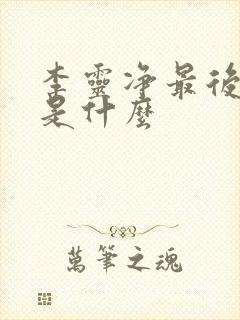 李靈净最後
是什麼
萬筆之魂